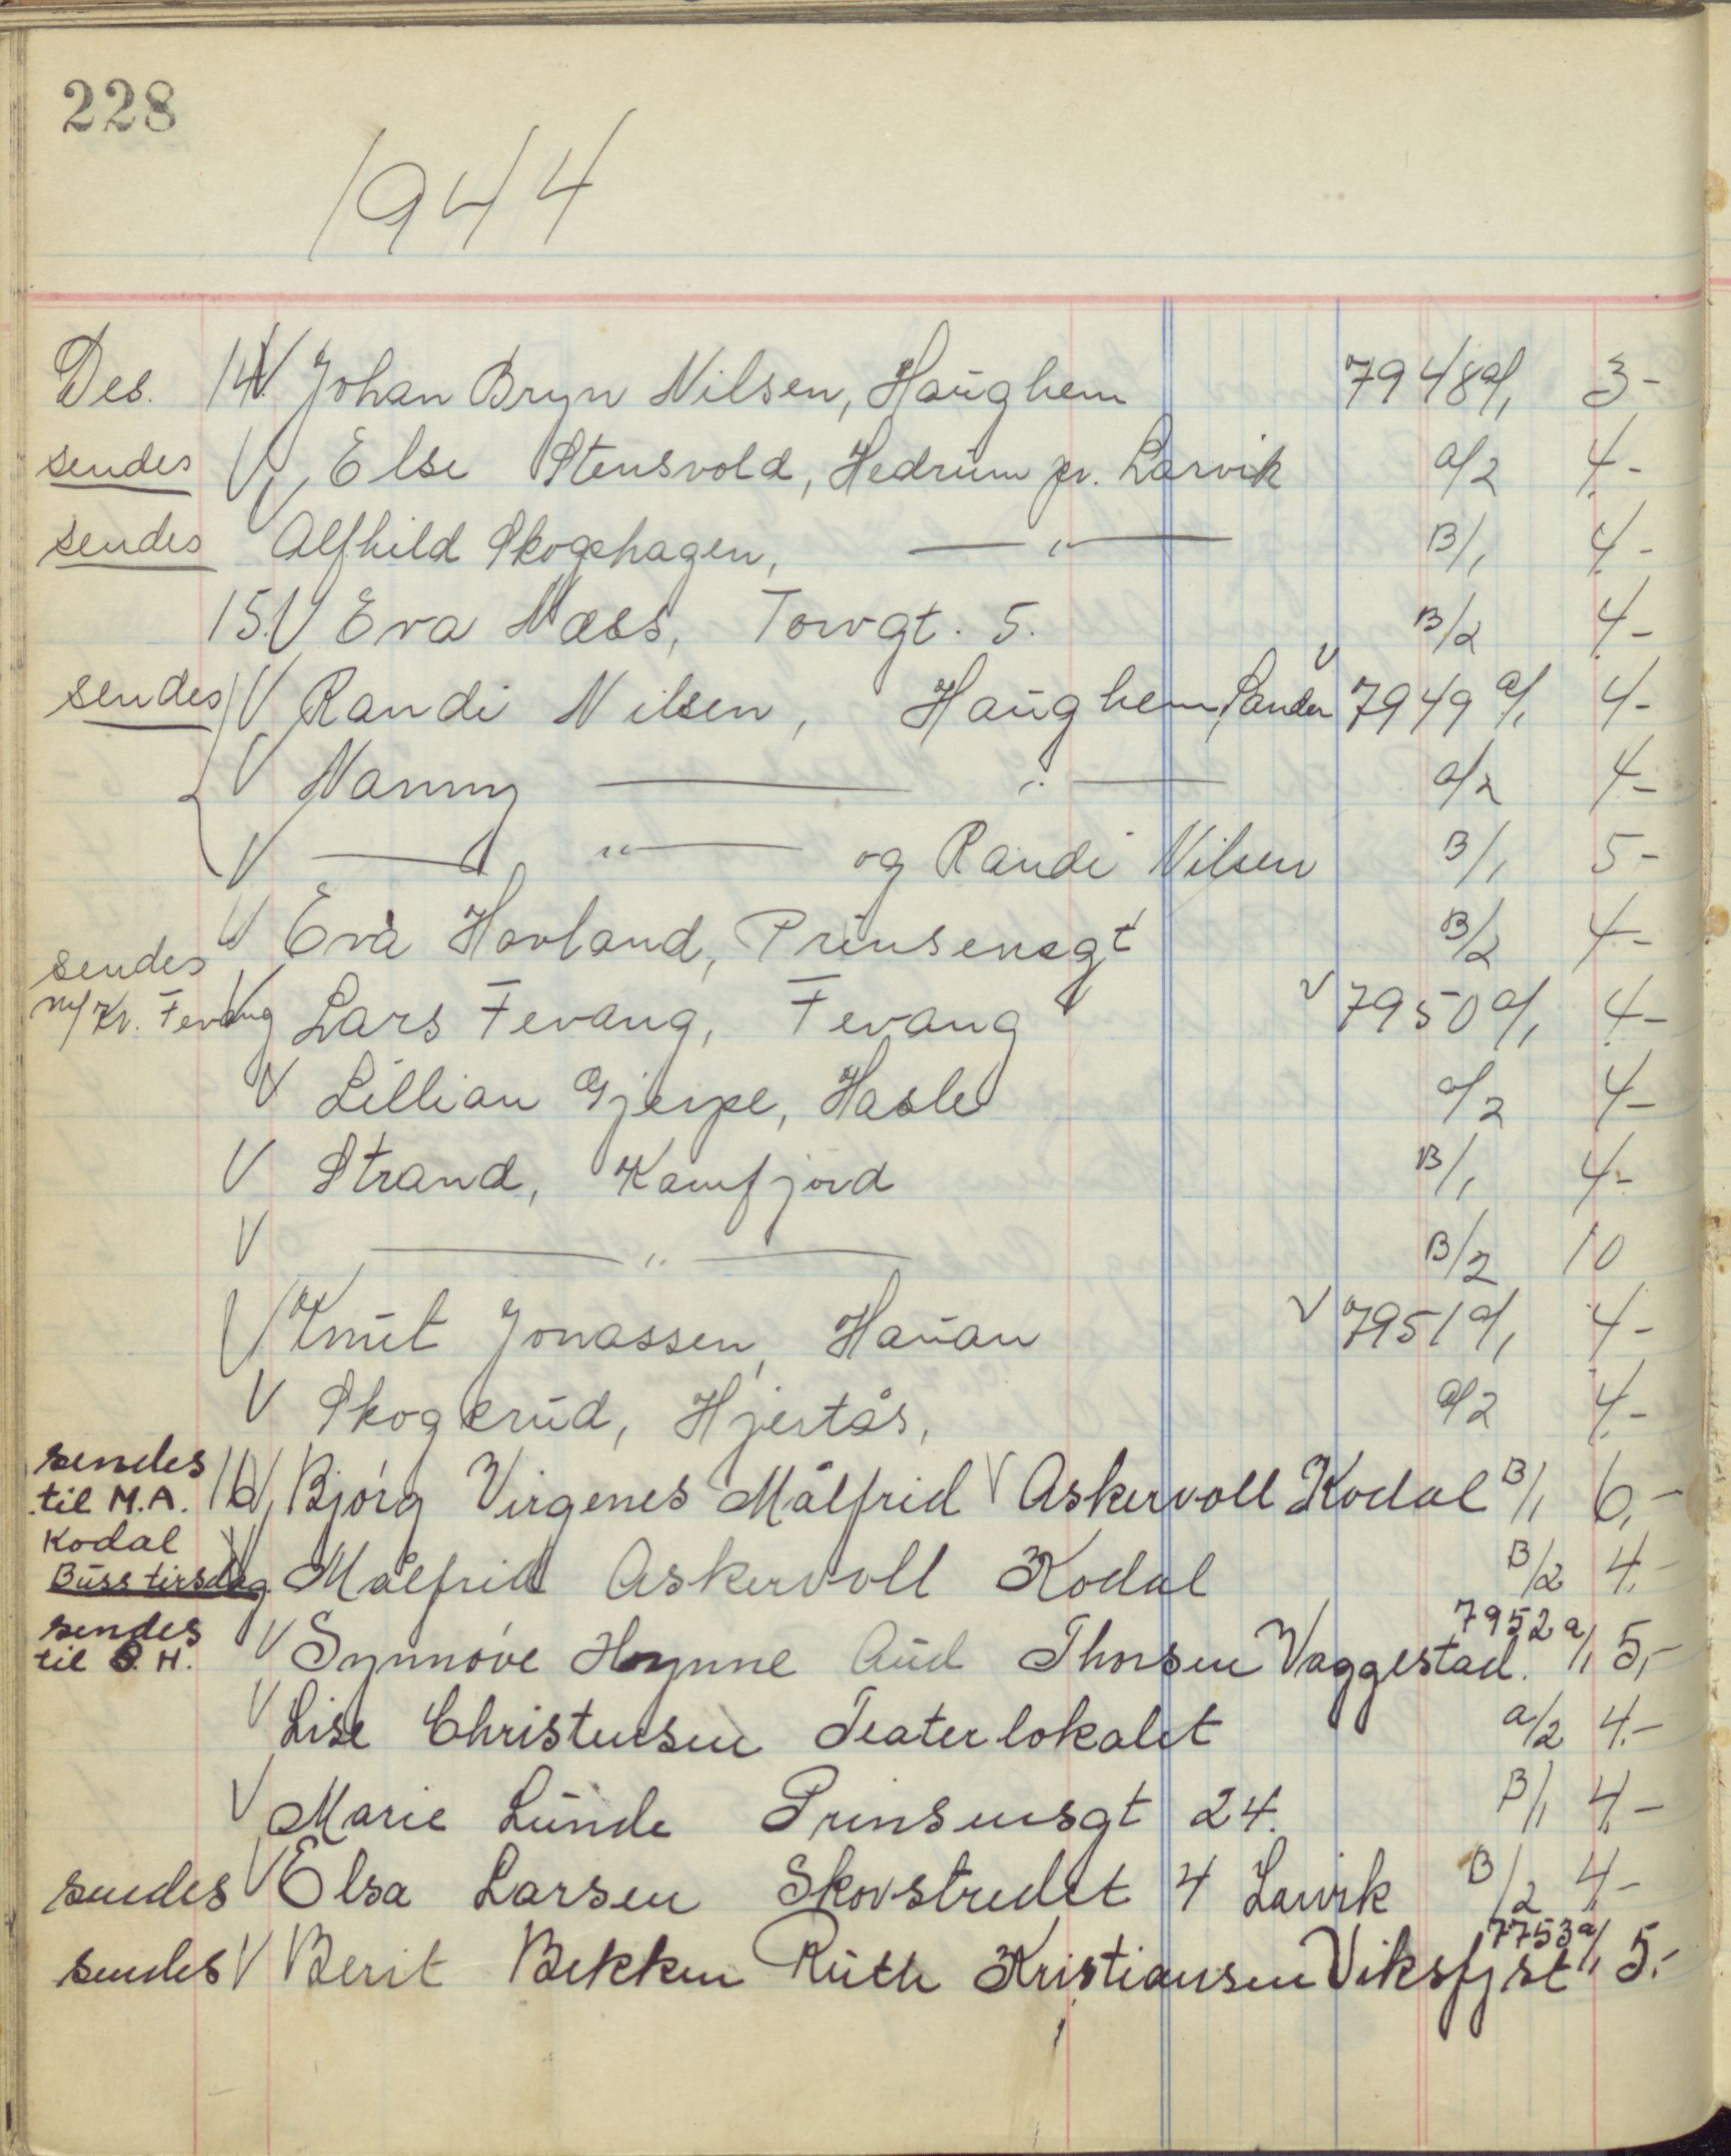 228
1944
Des. 14. V Johan Bryn Nilsen, Haughem 7948 a/1 3-
sendes V Else Stensvold, Hedrum pr. Larvik a/2 4-
sendes V Alfhild Skogshagen, —„— B/1 4-
15. V Eva Næss, Torvgt. 5. B/2 4-
sendes V Randi Nilsen, Haughem, Sandar V 7949 a/1 4-
V Nanny —„— a/2 4-
V —„— og Randi Nilsen B/1 5-
V Eva Hovland, Prinsensgt B/2 4-
sendes
m/Kr. Fevang V Lars Fevang, Fevang V 7950 a/1 4-
V Lillian Gjerpe, Hasle a/2 4-
V Strand, Kamfjord B/1 4-
V —„— B/2 10
V Knut Jonassen, Hauan V 7951 a/1 4-
V Skogkrud, Hjertås, a/2 4-
sendes
til M.A. 16 V Bjørg Virgenes Målfrid V Askervoll Kodal B/1 6,-
Kodal
Buss tirsdag V Målfrid Askervoll Kodal B/2 4.-
sendes 7952
til S. H. V Synnøve Hynne Aud Thorsen Vaggestad. a/1 5,-
V Lise Christensen Teaterlokalet a/2 4.-
V Marie Lunde Prinsensgt 24. B/1 4,-
sendes V Elsa Larsen Skovstredet 4 Larvik B/2 4,-
7753
sendes V Berit Bekken Ruth Kristiansen Viksfj st a/1 5.-